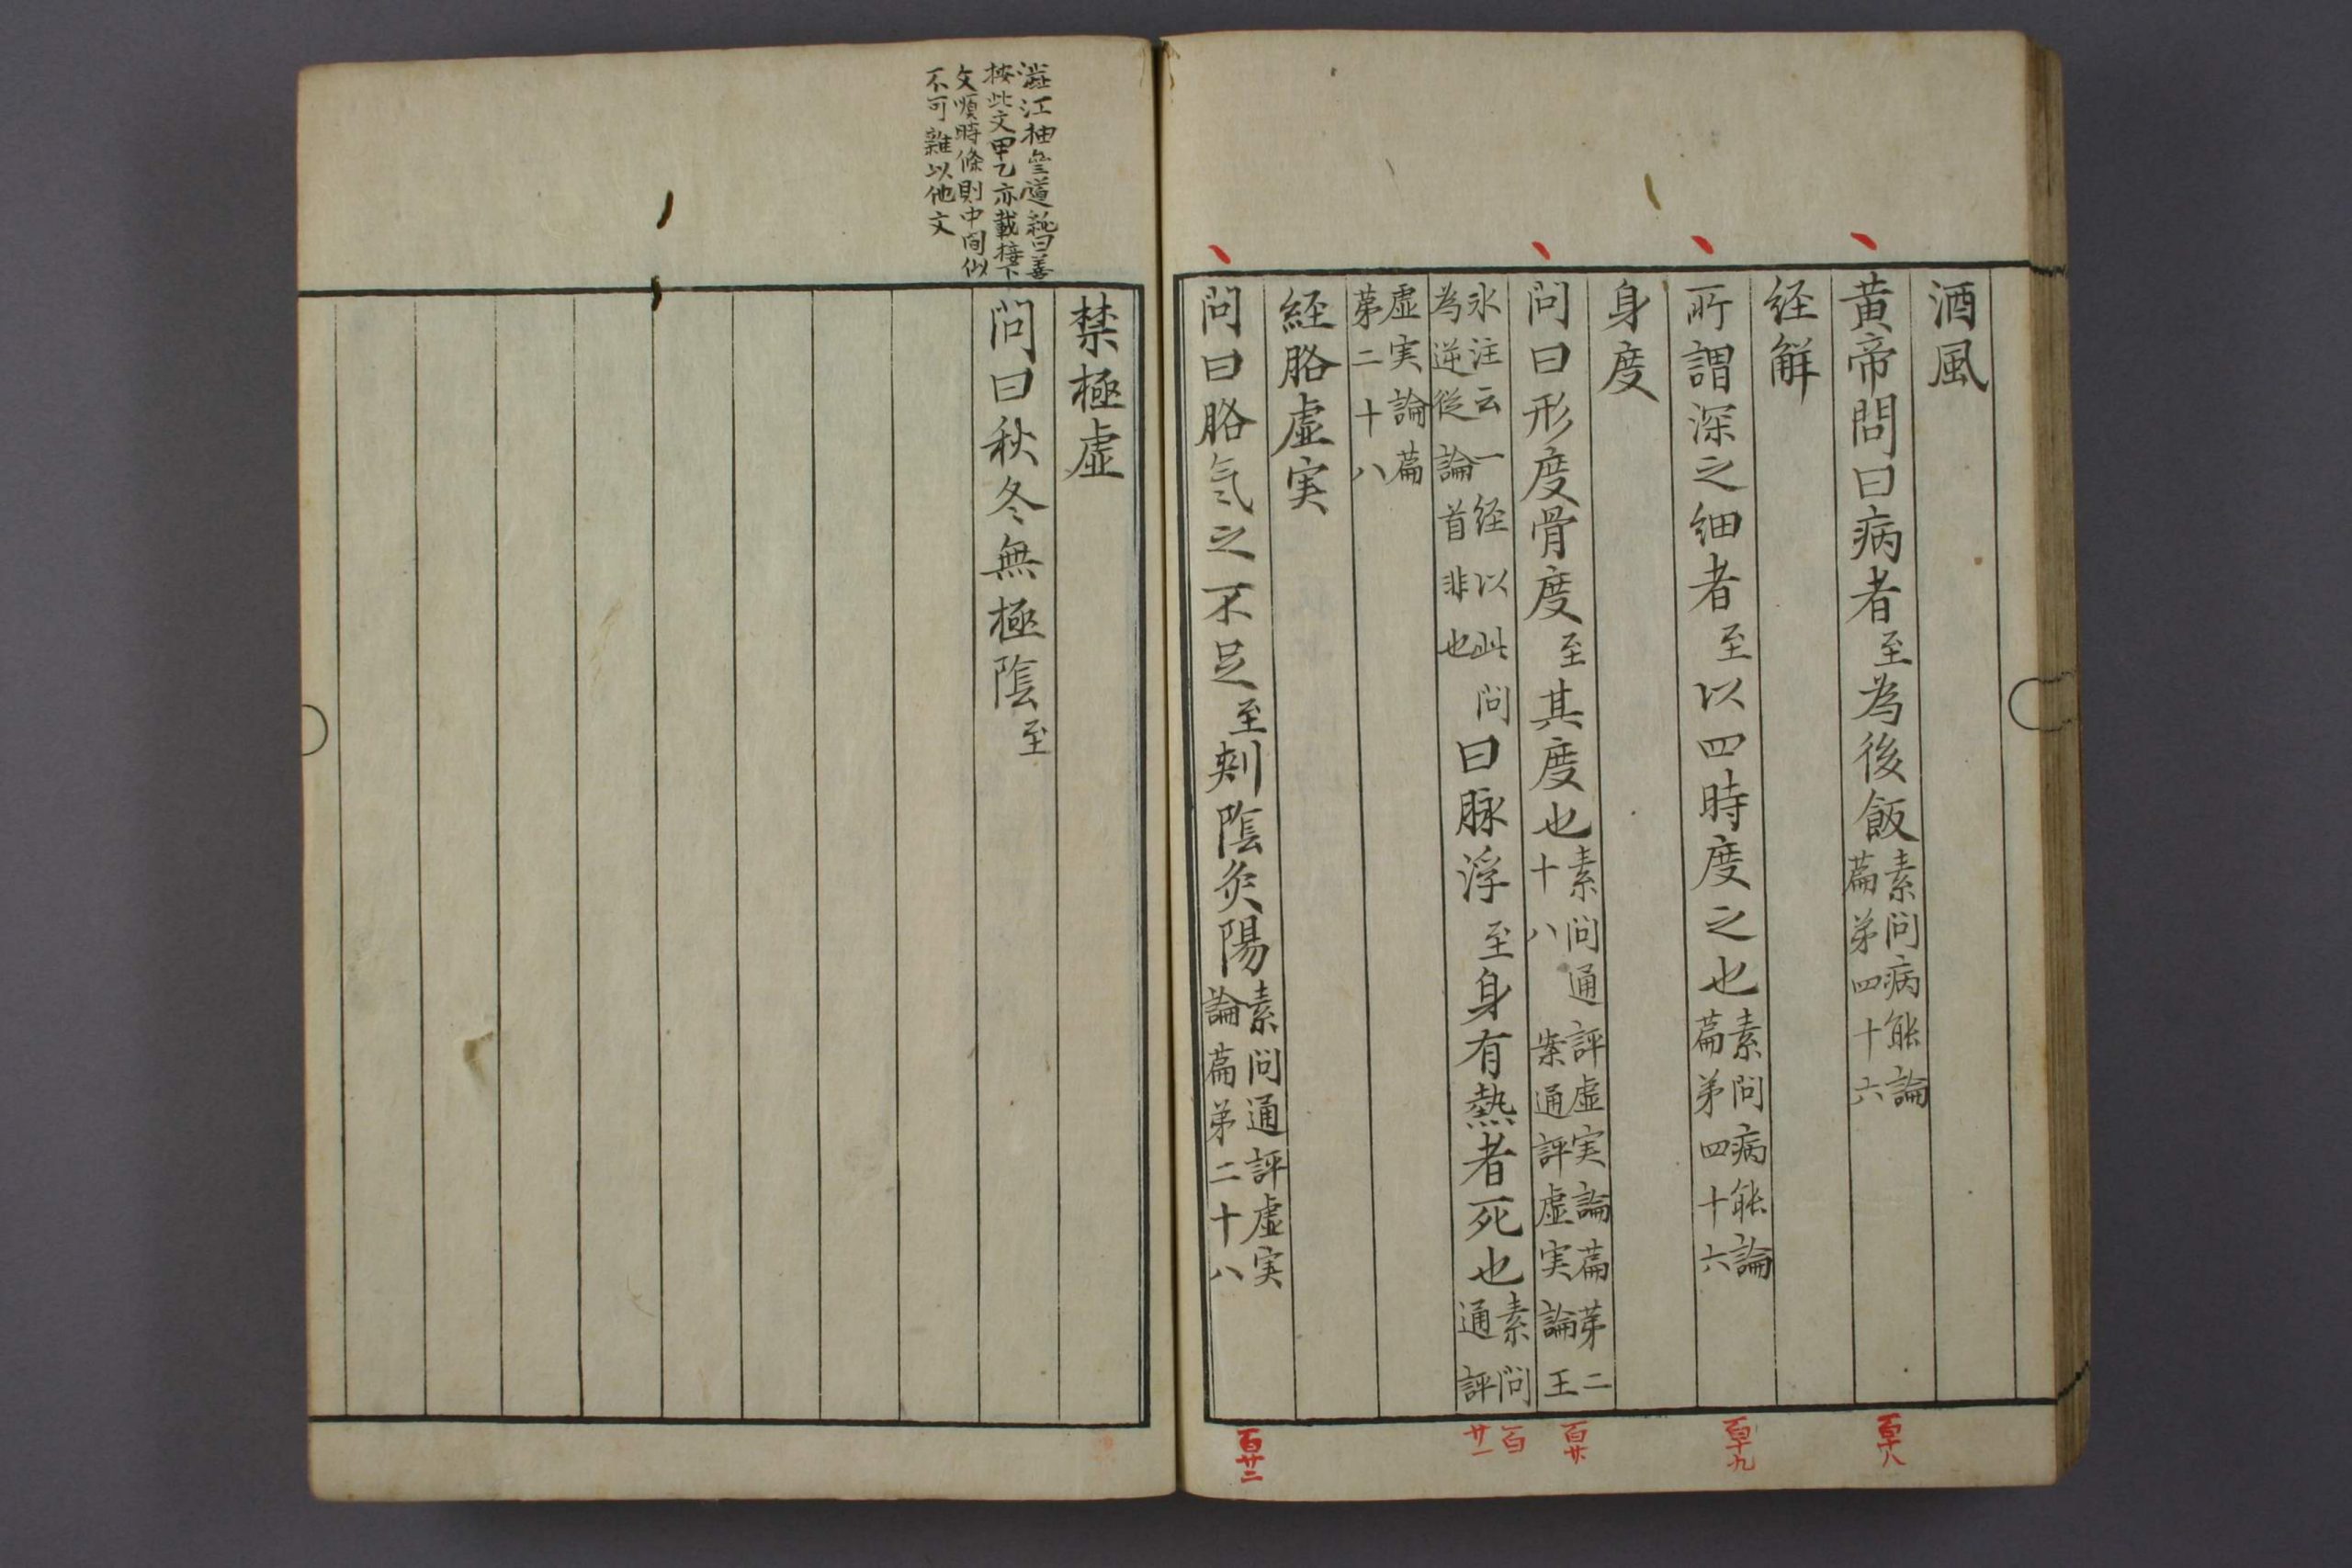 酒風
黄帝問曰病者至為後飯素問病能論篇第四十六
経解
所謂深之細者至以四時度之也素問病能論篇第四十六
身度
問曰形度骨度至其度也素問通評虚実論篇第二十八 案通評虚実論王
氷注云一経以此問為逆従論首非也問曰脉浮至身有熱者死也素問通評
虚実論篇第二十八
経胳虚実
問曰胳気之不足至刺陰灸陽素問通評虚実論篇第二十八
百十八
百十九
百廿
百廿一
百廿二
澁江抽斎道純曰善
按此文甲乙亦載接下
文順時條則中間似
不可雜以他文
禁極虚
問曰秋冬無極陰至